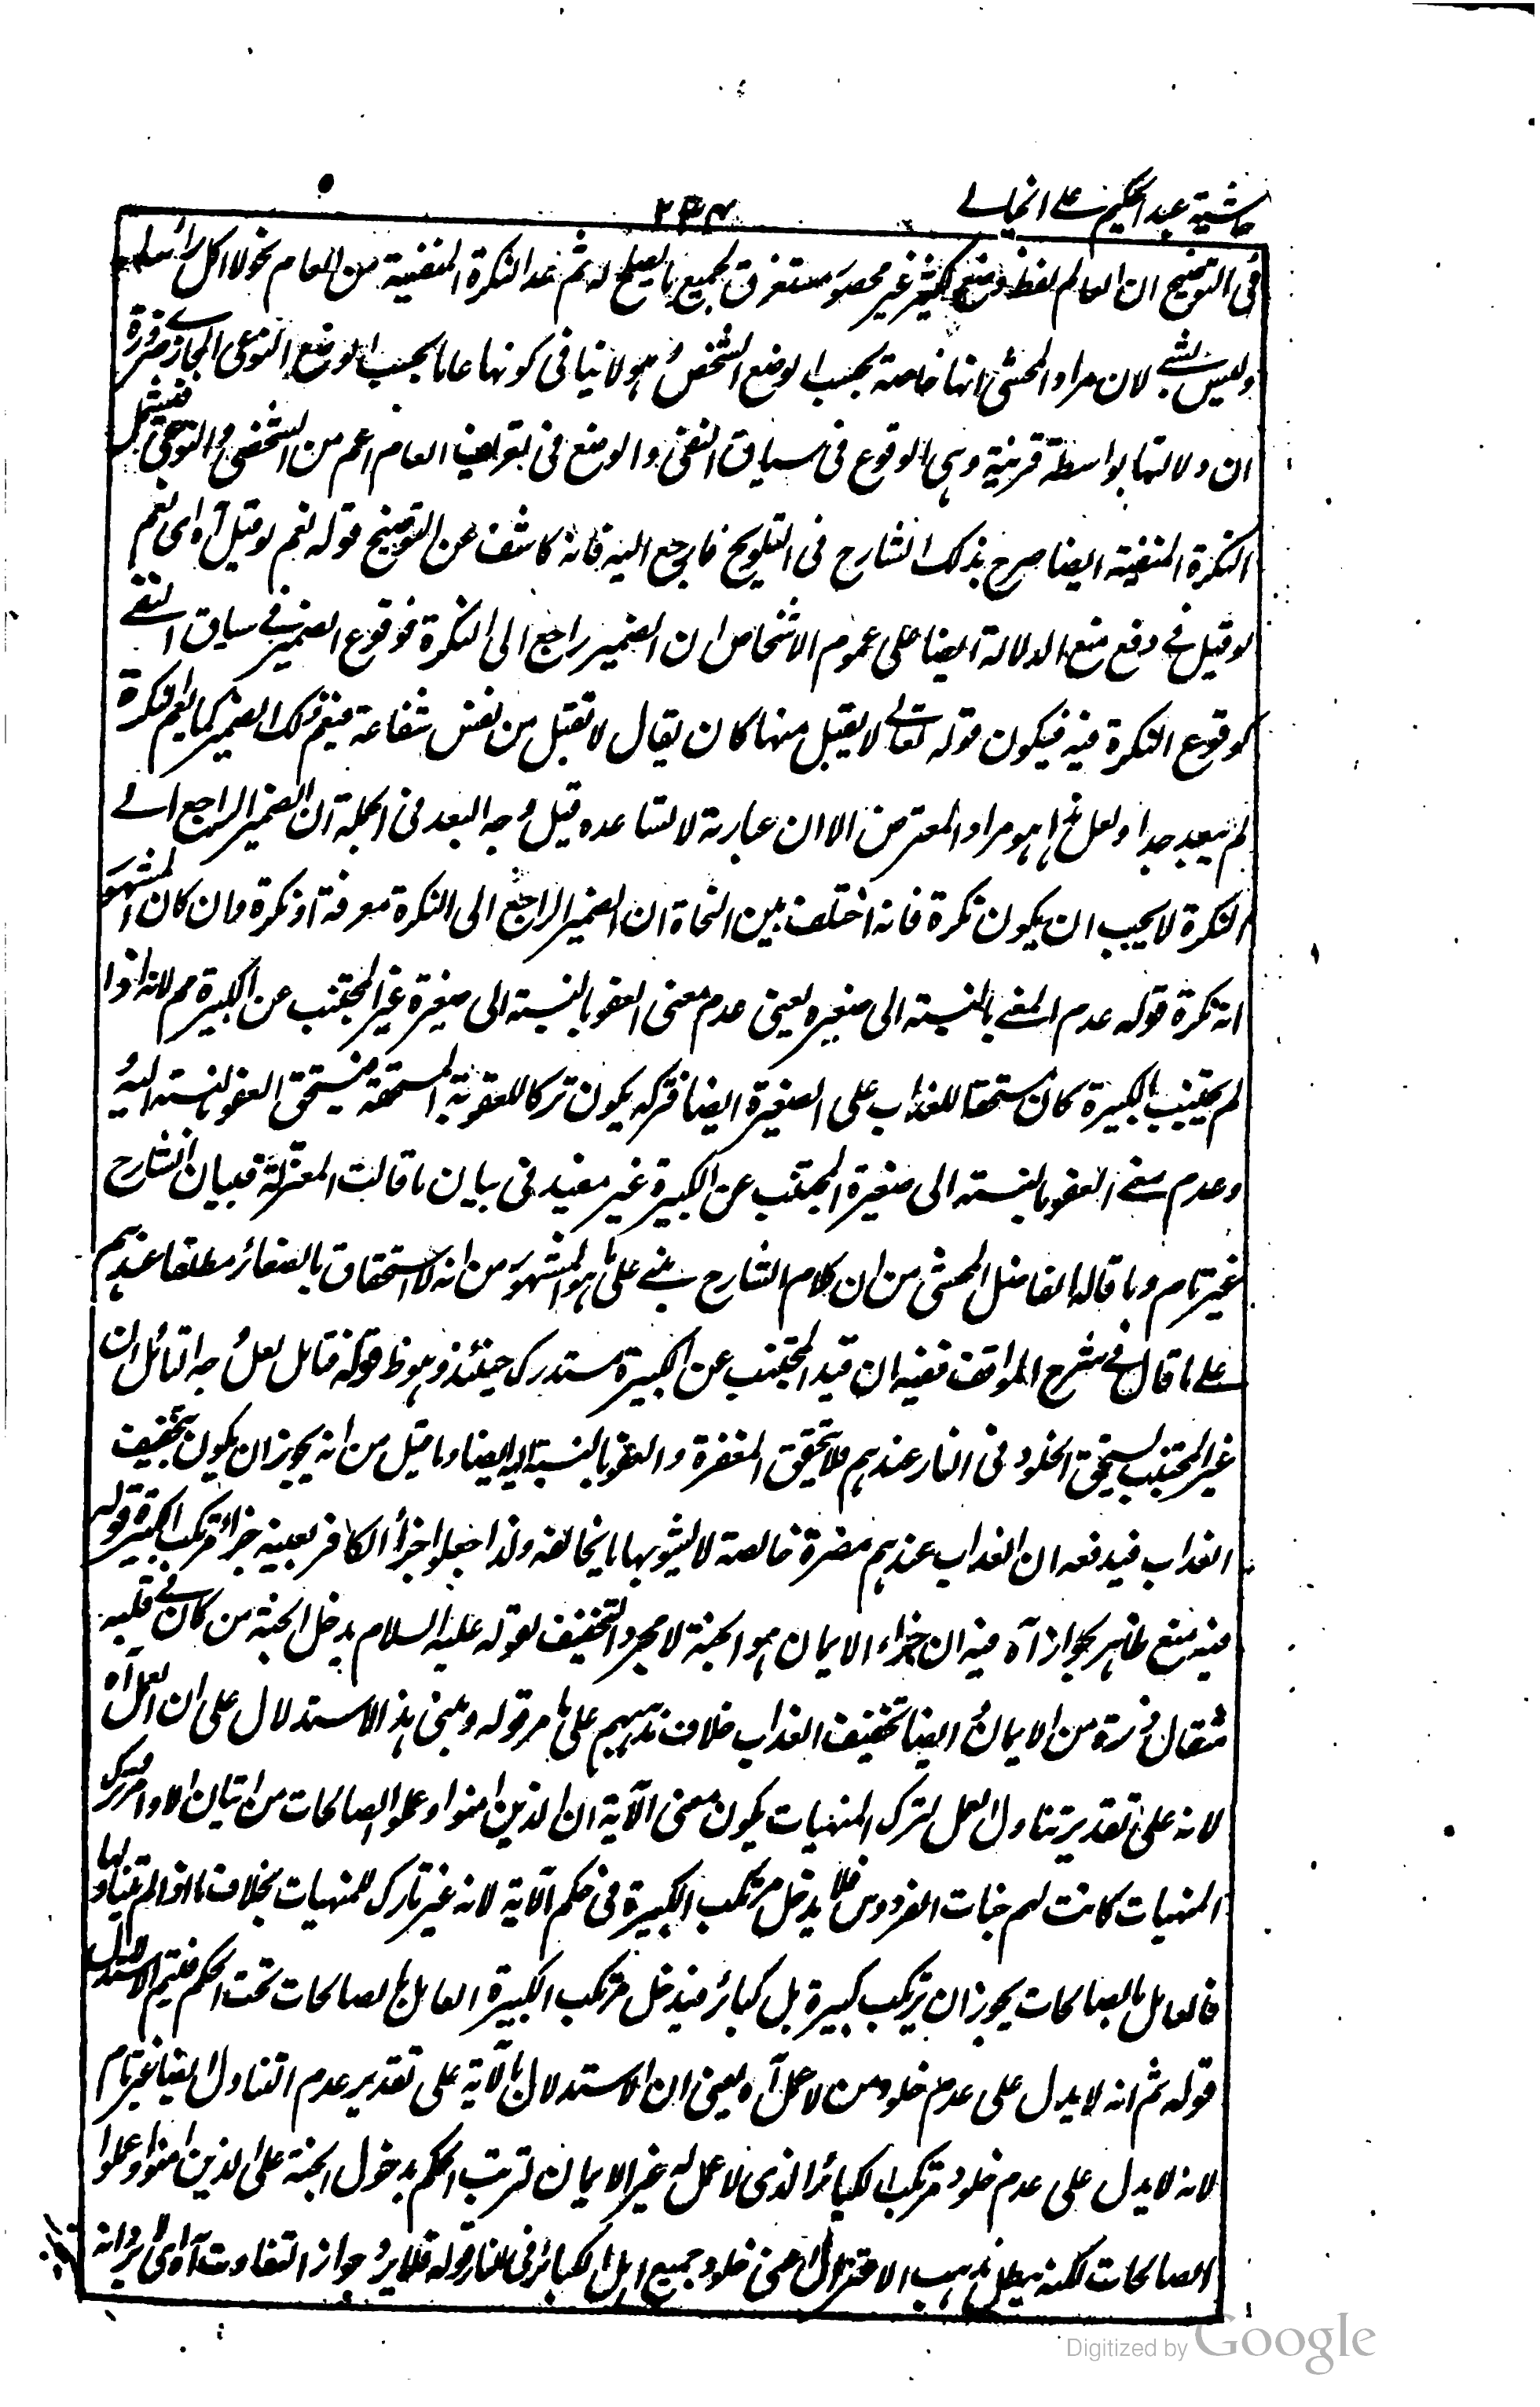 حاشية عبد الحكيم على الخيالى
٢٣٤
فى التوضيح ان العالم لفظ وضع لكثير غير محصور مستغرق لجميع ما يصلح له ثم عد النكرة المنفية من العام نحو لا اكل راسا
وليس بشئ لان مراد المحشى انها خاصة بحسب الوضع الشخصى وهو لا ينافى كونها عاما بحسب الوضع النوعى المجازى ضرورة
ان دلالتها بواسطة قرينة وهى الوقوع فى سياق النفى والوضع فى تعريف العام اعم من الشخصى والنوعى فيشمل
النكرة المنفية ايضا صرح بذلك الشارح فى التلويح فارجع اليه فانه كاشف عن التوضيح قوله نعم لو قيل آه اى نعم
لو قيل فى دفع منع الدلالة ايضا على عموم الاشخاص ان الضمير راجع الى النكرة فوقوع الضمير فى سياق النفى
كوقوع النكرة فيه فيكون قوله تعالى لا يقبل منها كان يقال لا تقبل من نفس شفاعة فيعم ذلك الضمير كما يعم النكرة
لم يبعد جدا ولعل هذا هو مراد المعترض الا ان عبارته لا تساعده قيل وجه البعد فى الجملة ان الضمير الراجع الى
النكرة لا يجب ان يكون نكرة فانه اختلف بين النحاة ان الضمير الراجع الى النكرة معرفة او نكرة وان كان المشهور
انه نكرة قوله عدم المعنى بالنسبة الى صغيره يعنى عدم معنى العفو بالنسبة الى صغيرة غير المجتنب عن الكبيرة مم لانه اذا
لم يجتنب الكبيرة كان مستحقا للعذاب على الصغيرة ايضا فتركه يكون تركا للعقوبة المستحقة فيتحقق العفو بالنسبة اليه
وعدم معنى العفو بالنسبة الى صغيرة المجتنب عن الكبيرة غير مفيد فى بيان ما قالت المعتزلة فبيان الشارح
غير تام وما قاله الفاضل المحشى من ان كلام الشارح بنى على ما هو المشهور من انه لا استحقاق بالصغائر مطلقا عندهم
على ما قال فى شرح المواقف ففيه ان قيد المجتنب عن الكبيرة مستدرك حينئذ وهو ظ قوله فتامل لعل وجه التامل ان
غير المجتنب يستحق الخلود فى النار عندهم فلا تحقق المغفرة والعفو بالنسبة اليه ايضا وما قيل من انه يجوز ان يكون بتخفيف
العذاب فيدفعه ان العذاب عندهم مضرة خالصة لا يشوبها ما يخالفه ولذا جعلوا جزاء الكافر بعينه جزاء مرتكب الكبيرة قوله
فيه منع ظاهر بجواز آه فيه ان جزاء الايمان هو الجنة لا مجرد التخفيف لقوله عليه السلام يدخل الجنة من كان فى قلبه
مثقال ذرة من الايمان وايضا تخفيف العذاب خلاف مذهبهم على ما مر قوله ومبنى هذا الاستدلال على ان العمل آه
لانه على تقدير تناول العمل لترك المنهيات يكون معنى الآية ان الذين امنوا وعملوا الصالحات من اتيان الاوامر وترك
المنهيات كانت لهم جنات الفردوس فلا يدخل مرتكب الكبيرة فى حكم الآية لانه غير تارك للمنهيات بخلاف ما اذا لم يتناولها
فالعامل بالصالحات يجوز ان يرتكب كبيرة بل كبائر فيدخل مرتكب الكبيرة العامل بالصالحات تحت الحكم فيتم الاستدلال
قوله ثم انه لا يدل على عدم خلود من لا عمل آه يعنى ان الاستدلال بالآية على تقدير عدم التناول ايضا غير تام
لانه لا يدل على عدم خلود مرتكب الكبائر الذى لا عمل له غير الايمان لترتب الحكم بدخول الجنة على الذين امنوا وعملوا
الصالحات لكنه يبطل مذهب الاعتزال اعنى خلود جميع اهل الكبائر فى النار قوله فلا يرد جواز التفاوت آه اى لا يرد انه
Digitized by Google